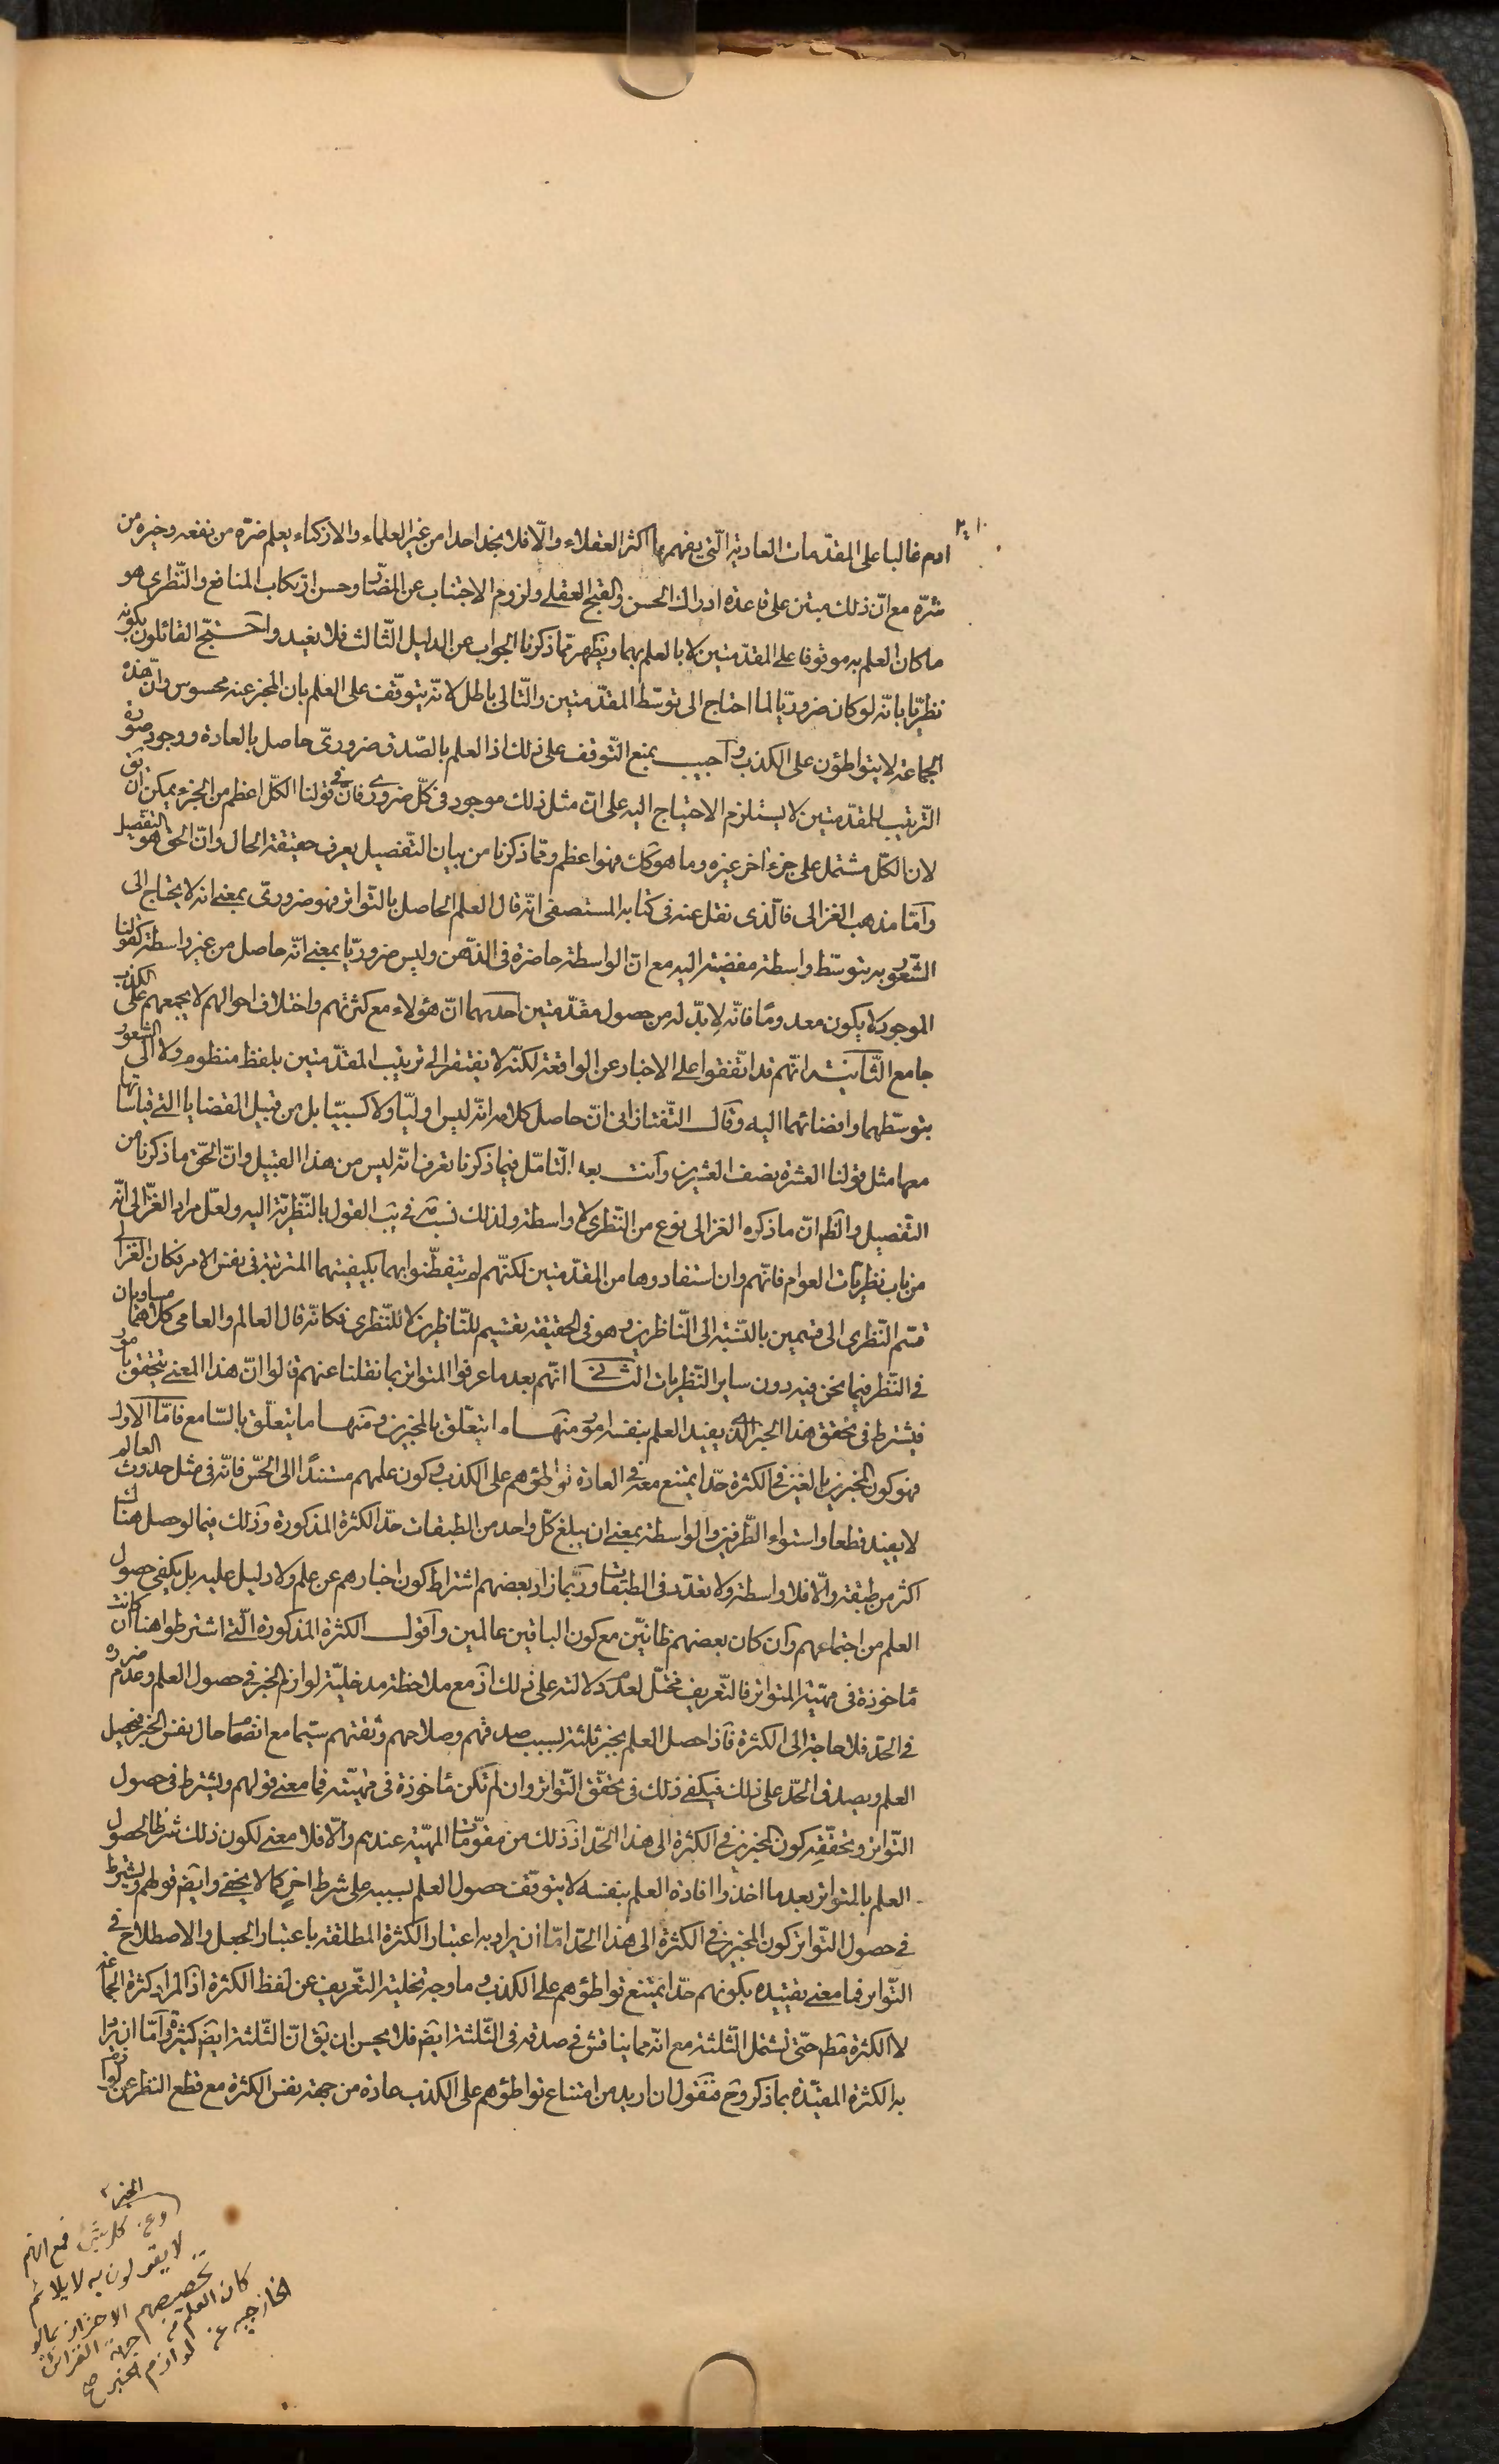 ادم غالبا على المقدّمات العادية الّتى يفهم بها اكثر العقلاء والّا فلا نجد احدا من غير العلماء والاذكياء يعلم ضرّه من نفعه وخيره من
شرّه مع انّ ذلك مبتن على قاعدة ادراك الحسن والقبح العقلى ولزوم الاجتناب عن المضارّ وحسن ارتكاب المنافع والنّظرى هو
ما كان العلم به موقوفا على المقدّمتين لا بالعلم بهما ويظهر ممّا ذكرنا الجواب عن الدليل الثّالث فلا يفيد واحتجّ القائلون بكونه
نظريّا بانّه لو كان ضروريّا لما احتاج الى توسّط المقدّمتين والتّالى باطل لانّه يتوقّف على العلم بان المخبر عنه محسوس وانّ هذه
الجماعة لا يتواطئون على الكذب واجيب بمنع التّوقف على ذلك اذ العلم بالصّدق ضرورىّ حاصل بالعادة ووجود صورة
التّرتيب للمقدّمتين لا يستلزم الاحتياج اليه على انّ مثل ذلك موجود فى كلّ ضرورى فانّ فى قولنا الكلّ اعظم من الجزء يمكن ان يق
لان الكلّ مشتمل على جزء اخر غيره وما هو كك فهو اعظم وممّا ذكرنا من بيان التّفصيل يعرف حقيقة الحال وانّ الحق هو التفصيل
وامّا مذهب الغزالى فالّذى نقل عنه فى كتابه المستصفى انّه قال العلم الحاصل بالتّواتر فهو ضرورىّ بمعنى انه لا يحتاج الى
الشّعور به بتوسّط واسطة مفضية اليه مع انّ الواسطة حاضرة فى الذّهن وليس ضروريّا بمعنى انّه حاصل من غير واسطة كقولنا
الموجود لا يكون معدوما فانّه لا بدّ له من حصول مقدّمتين احديهما انّ هؤلاء مع كثرتهم واختلاف احوالهم لا يجمعهم على الكذب
جامع الثّانية انّهم قد اتّفقوا على الاخبار عن الواقعة لكنّه لا يفتقر الى ترتيب المقدّمتين بلفظ منظوم ولا الى الشعور
بتوسّطهما وافضائهما اليه وقال التّفتازانى انّ حاصل كلامه انّه ليس اوليّا ولا كسبيّا بل من قبيل القضايا التى قياساتها
معها مثل قولنا العشرة نصف العشرين وانت بعد التّامّل فيما ذكرنا تعرف انّه ليس من هذا القبيل وانّ الحقّ ما ذكرنا من
التّفصيل والظم انّ ما ذكره الغزالى نوع من النّظرى لا واسطة ولذلك نسب القول بالنّظريّة اليه ولعلّ مراد الغزّالى انّه
من باب نظريّات العوام فانّهم وان استفادوها من المقدّمتين لكنّهم لم يتفطّنوا بهما بكيفيتهما المترتبة فى نفس الامر فكان الغزالى
قسّم النّظرى الى قسمين بالنّسبة الى النّاظرين وهو فى الحقيقة تقسيم للنّاظرين لا للنّظرى فكانّه قال العالم والعامى كلاهما مساويان
فى النّظر فيما نحن فيه دون ساير النّظريات الثانى انّهم بعد ما عرفوا المتواتر بما نقلنا عنهم قالوا انّ هذا المعنى يتحقق بامور
فيشترط فى تحقق هذا الخبر الّذى يفيد العلم بنفسه امور منها ما يتعلّق بالمخبرين ومنها ما يتعلّق بالسّامع فامّا الاوّل
فهو كون المخبرين بالغين فى الكثرة حدّا يمتنع معه فى العادة تواطؤهم على الكذب وكون علمهم مستندًا الى الحسّ فانّه فى مثل حدوث العالم
لا يفيد قطعا واستواء الطّرفين والواسطة بمعنى ان يبلغ كلّ واحد من الطبقات حدّ الكثرة المذكورة وذلك فيما لو حصل هناك
اكثر من طبقة والّا فلا واسطة ولا تعدّد فى الطبقات وربّما زاد بعضهم اشتراط كون اخبارهم عن علم ولا دليل عليه بل يكفى حصول
العلم من اجتماعهم وان كان بعضهم ظانيّن مع كون الباقين عالمين واقول الكثرة المذكورة الّتى اشترطوا هنا ان كانت
مأخوذة فى مهيّة المتواتر فالتّعريف مختلّ لعدم دلالته على ذلك اذ مع ملاحظة مدخليّة لوازم الخبر فى حصول العلم وعدم ضرره
فى الحدّ فلا حاجة الى الكثرة فاذا حصل العلم بخبر ثلثة بسبب صدقهم وصلاحهم وثقتهم سيّما مع انضمام حال نفس الخبر فيحصل
العلم ويصدق الحدّ على ذلك فيكفى ذلك فى تحقّق التّواتر وان لم تكن مأخوذة فى مهيّته فما معنى قولهم ويشترط فى حصول
التّواتر وتحقّقه كون المخبرين فى الكثرة الى هذا الحدّ اذ ذلك من مقوّمات المهيّة عندهم والّا فلا معنى لكون ذلك شرطا لحصول
العلم بالمتواتر بعد ما اخذوا افادة العلم بنفسه لا يتوقّف حصول العلم بسببه على شرط اخر كما لا يخفى وايضم قولهم ويشترط
فى حصول التّواتر كون المخبرين فى الكثرة الى هذا الحدّ امّا ان يراد به اعتبار الكثرة المطلقة باعتبار الجعل والاصطلاح فى
التّواتر فما معنى تقييده بكونهم حدّا يمتنع تواطؤهم على الكذب وما وجه تخلية التّعريف عن لفظ الكثرة اذ المراد كثرة الجماعة
لا الكثرة مط حتّى تشتمل الثّلثة مع انّه مما يناقش فى صدقه فى الثّلثة ايضم فلا يحسن ان يق انّ الثّلثة ايضم كثيرة وامّا ان يراد
به الكثرة المقيّدة بما ذكر وح فنقول ان اريد من امتناع تواطؤهم على الكذب عادة من جهة نفس الكثرة مع قطع النظر عن لوازم
الخبر
وعن كل شئ فمع انهم
لا يقولون به لا يلائم
تخصيصهم الاحتراز بما لو
كان العلم من جهة القرائن
الخارجيه عن لوازم الخبر صح